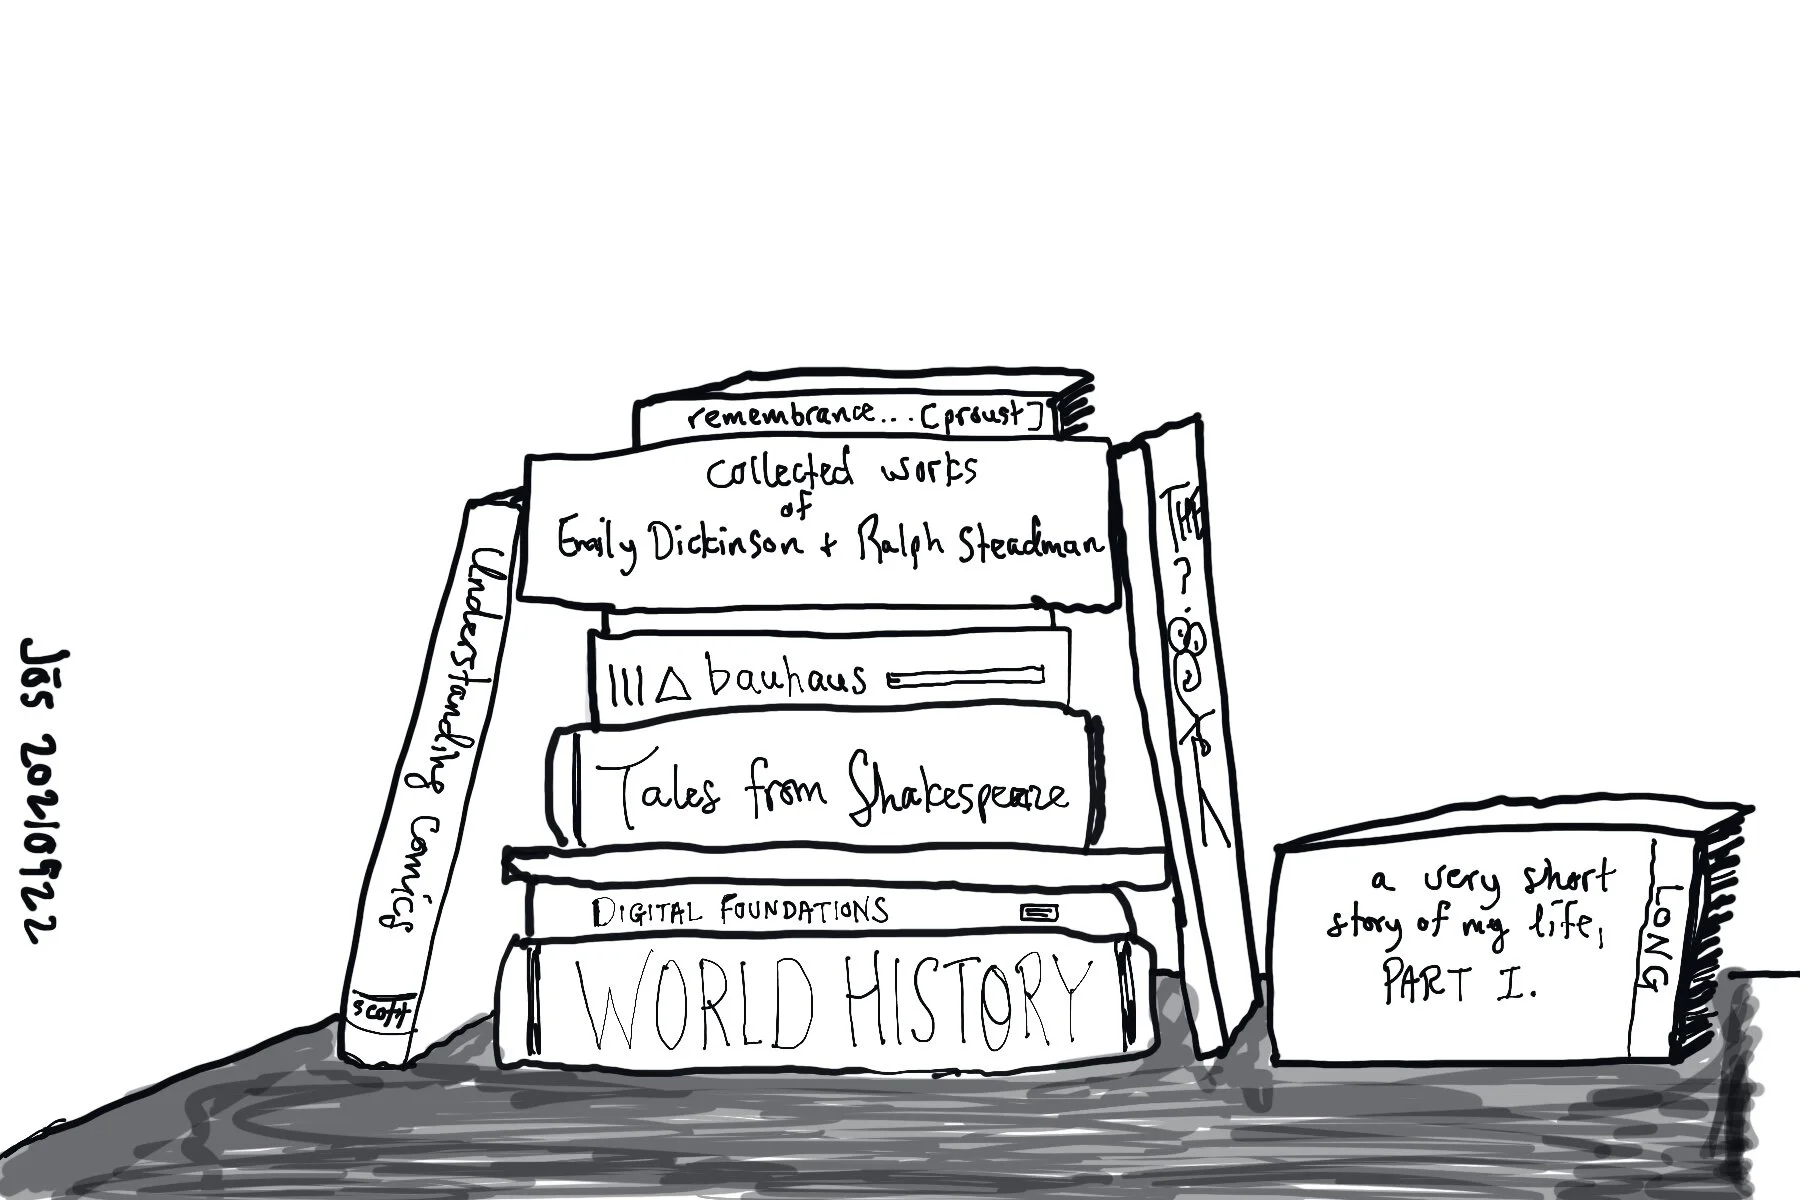 remembrance... [proust]
collected works
of
Emily Dickinson + Ralph Steadman
Understanding Comics
scott
THE
?
bauhaus
Tales from Shakespeare
DIGITAL FOUNDATIONS
WORLD HISTORY
a very short
story of my life,
PART I.
LONG
Jās 20210922